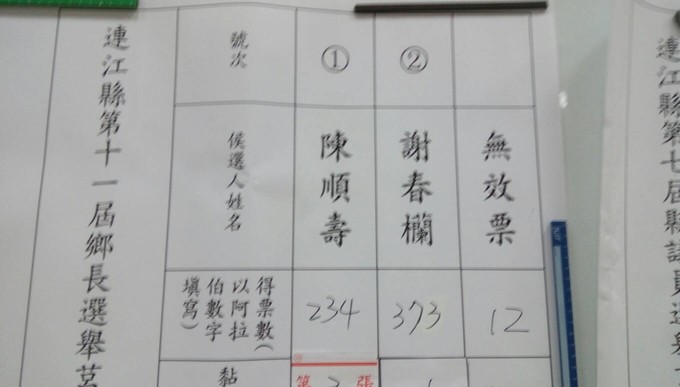 連江縣第十一屆鄉長選舉莒
號次
①
②
候選人姓名
陳順壽
謝春欄
無效票
得票數(
以阿拉
伯數字
填寫)
234
373
12
黏
第
張